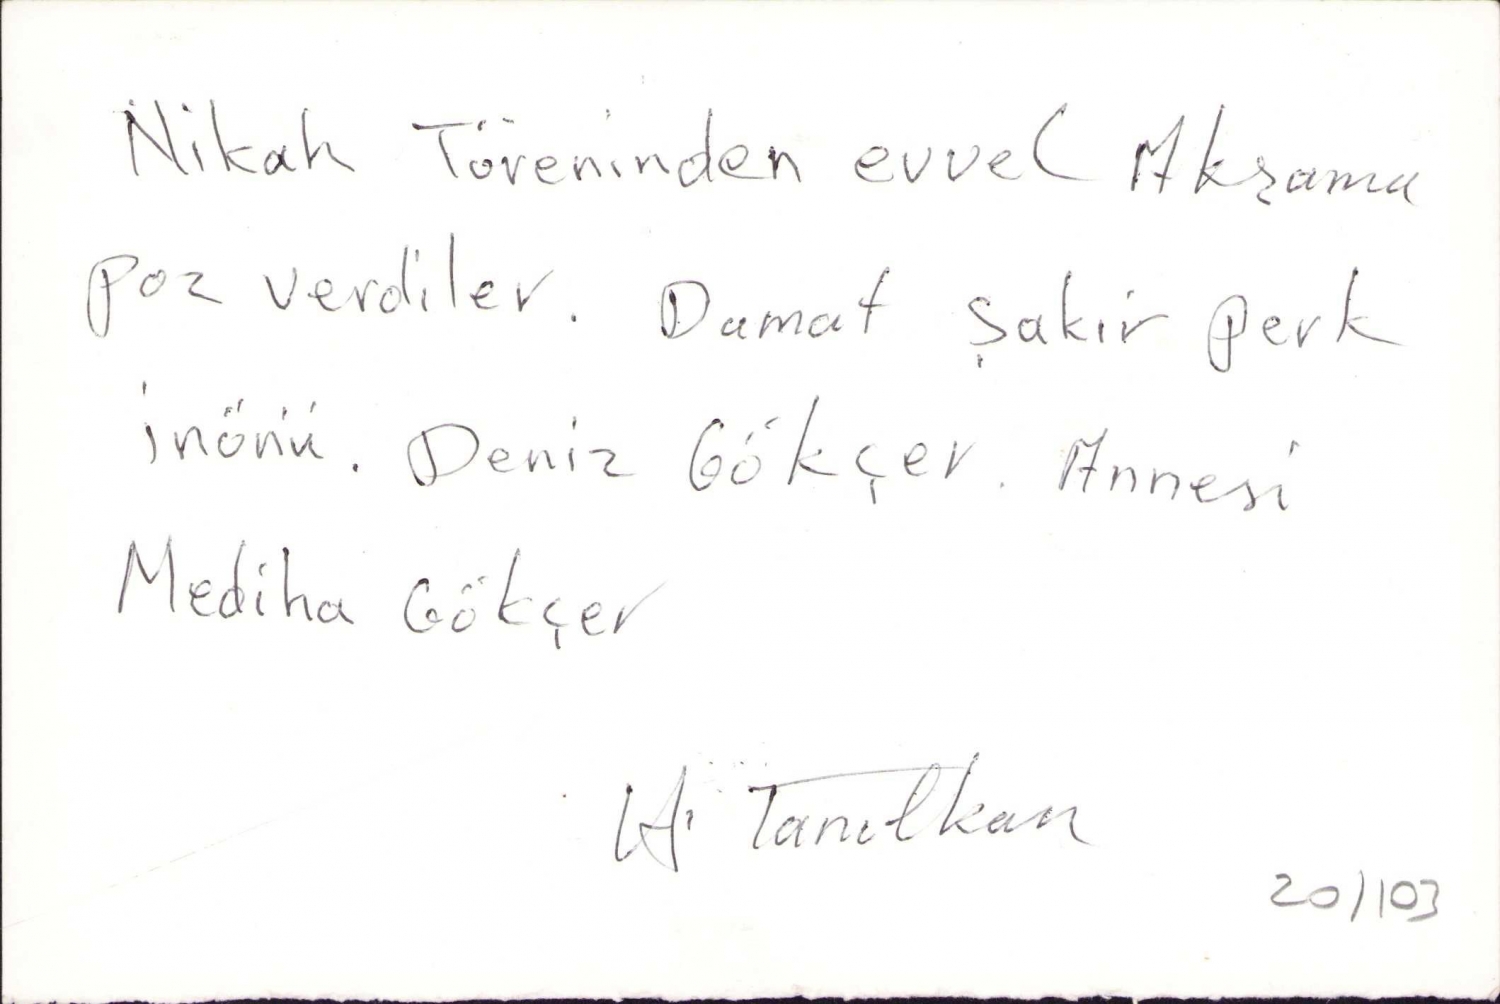 Nikah Töreninden evvel Akşama
poz verdiler. Damat Şakir Perk
inönü. Deniz Gökçer. Annesi
Mediha Gökçer
Tanılkan
20/103